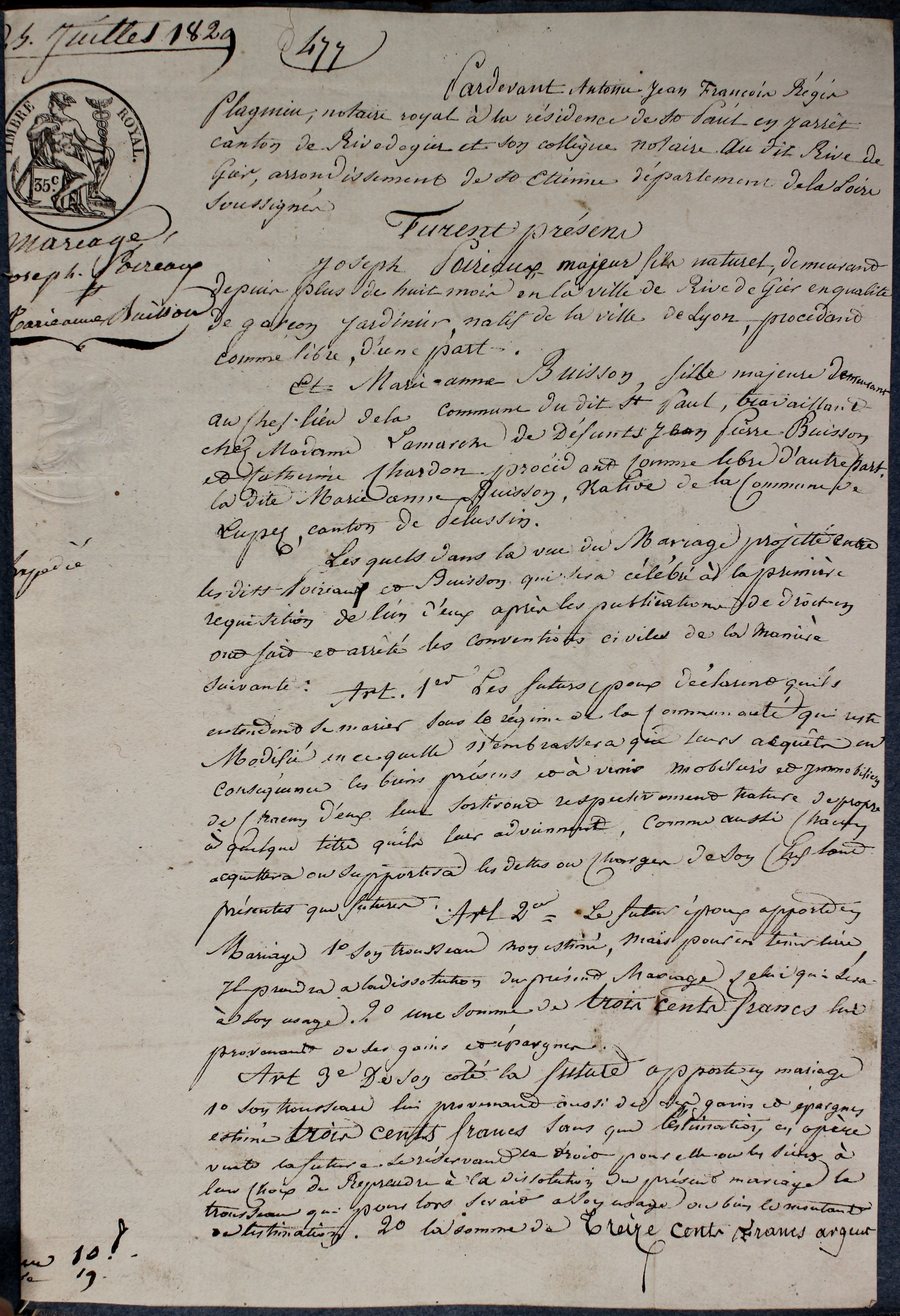 25. Juillet 1829
477
TIMBRE ROYAL.
35 c.
Mariage
Joseph Poireaux
et
Marieanne Buisson
Expédié
Pardevant Antoine Jean François Régis
notaire royal à la résidence de St Paul en Jarrêt
canton de Rivedegier et son collègue notaire au dit Rive de
Gier, arrondissement de St Etienne département de la Loire
soussignés
Furent présens
Joseph Poireaux majeur fils naturel, demeurant
depuis plus de huit mois en la ville de Rive de Gier en qualité
de garçon jardinier, natif de la ville de Lyon, procédant
comme libre, d'une part.
Et Marie-anne Buisson, fille majeure demeurant
au chef-lieu de la commune du dit St Paul, travaillant
chez Madame Lamarche de Défunts Jean Pierre Buisson
et Catherine Chardon procédant comme libre d'autre part.
la dite Marie anne Buisson, Native de la Commune de
Lupé, canton de Pélussin.
Lesquels dans la vue du Mariage projetté entre
les dits Poireaux et Buisson qui sera célébré à la première
requisition de l'un d'eux après les publications de droit en
ont fait et arrêté les conventions civiles de la manière
suivante : Art. 1er Les futurs époux déclarent qu'ils
entendent se marier sous le régime de la Communauté qui reste
Modifié en ce quelle n'embrassera que leurs acquêts en
conséquence les biens présens et à venir mobiliers et immobiliers
de Chacun d'eux leur sortiront respectivement Nature de propre
à quelque titre qu'ils leur adviennent, comme aussi Chacun
acquittera ou supportera les dettes ou Charges de son Chef tant
présentes que futures. Art 2e = Le futur époux apporte en
Mariage 1o son trousseau non estimé, mais pour en tenir lieu
Il prendra a la dissolution du présent Mariage celui qui sera
à son usage. 2o une somme de trois cents francs lui
provenant de ses gains et épargnes.
Art 3e De son coté la future apporte en mariage
1o son trousseau lui provenant aussi de ses gains et épargnes
estimé trois cents francs sans que l'estimation en opère
vente la future se réservant le droit pour elle ou les siens à
leur Choix de Reprendre à la dissolution du présent mariage le
trousseau qui pour lors serait a son usage ou bien le montant
de l'estimation. 2o la somme de Treize cents francs argent
10
19.